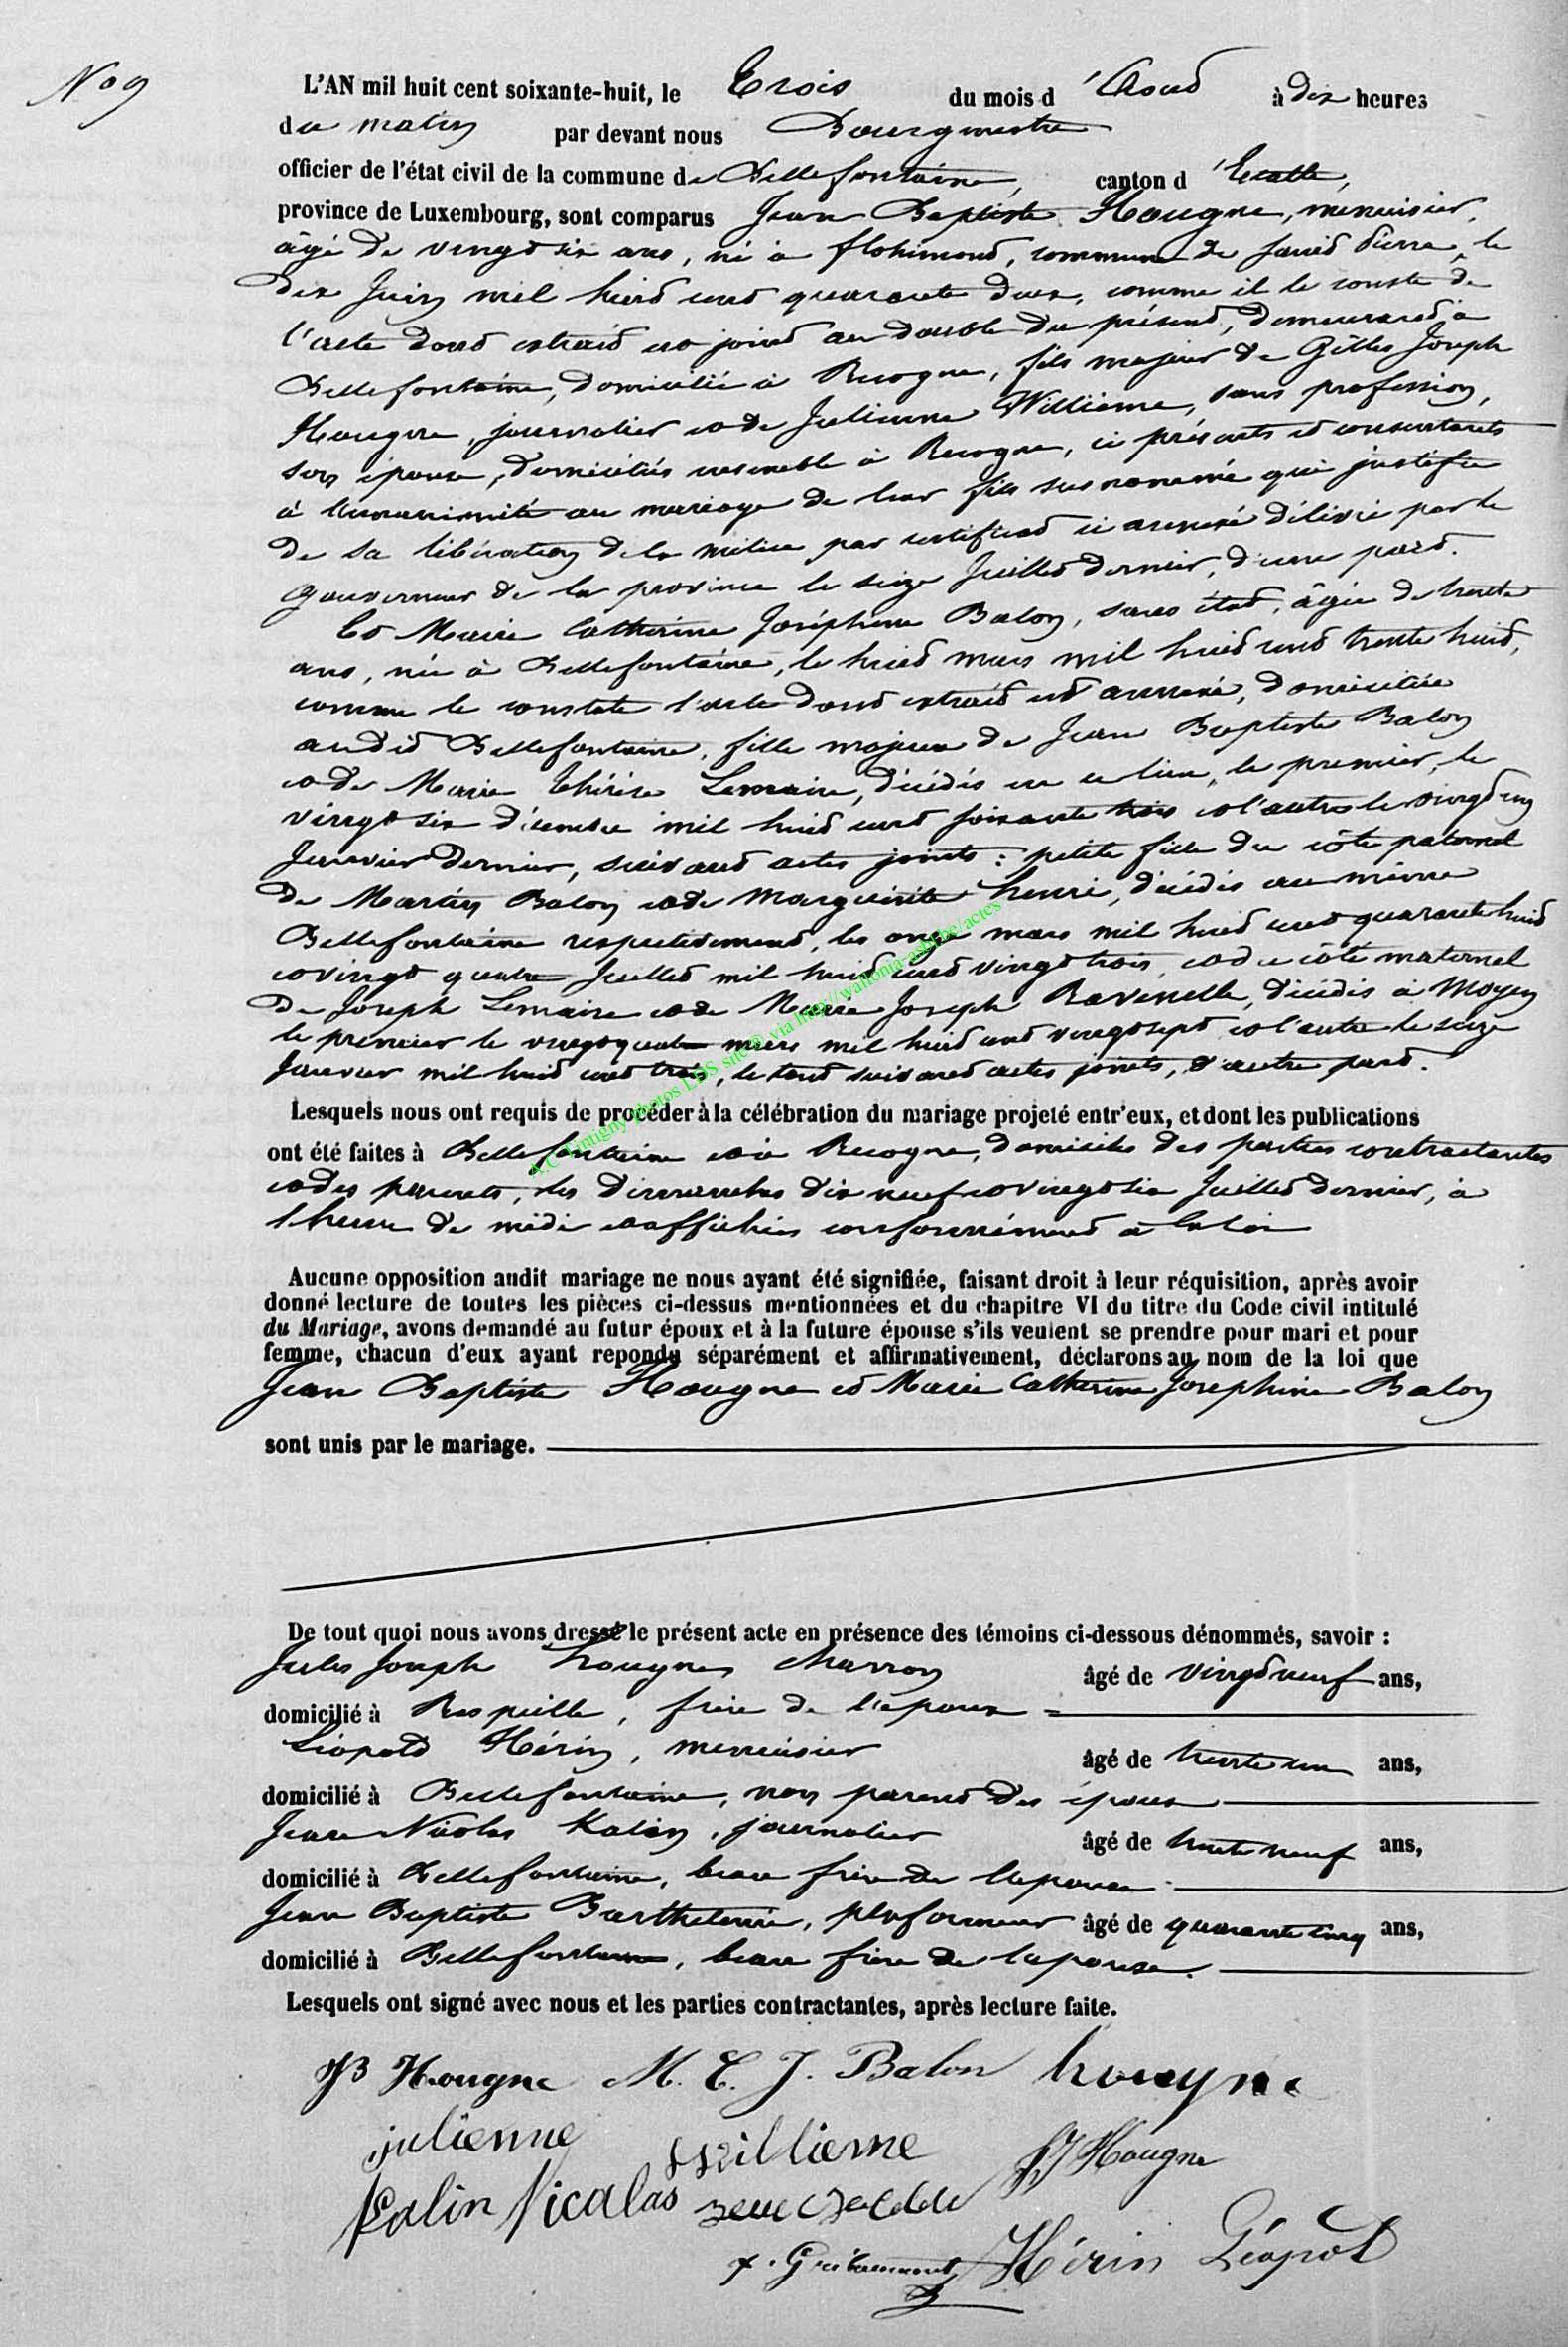 No 9
L'AN mil huit cent soixante-huit, le Trois du mois d'Aout à dix heures
du matin par devant nous Bourgmestre
officier de l'état civil de la commune de Bellefontaine, canton d'Etalle,
province de Luxembourg, sont comparus Jean Baptiste Hougne, menuisier,
âgé de vingt six ans, né à flohimont, commune de Saint Pierre, le
dix Juin mil huit cent quarante deux, comme il le conste de
l'acte dont extrait est joint au double du présent, demeurant à
Bellefontaine, domicilié à Recogne, fils majeur de Gilles Joseph
Hougne, journalier et de Julienne Willieme, sans profession,
son épouse, domiciliés ensemble à Recogne, ci présents et consentants
à l'unanimité au mariage de leur fils susnommé qui justifie
de sa libération de la milice par certificat ci annexé délivré par le
gouverneur de la province le seize Juillet dernier, d'une part.
Et Marie Catherine Joséphine Balon, sans état, âgée de trente
ans, née à Bellefontaine, le huit mars mil huit cent trente huit,
comme le constate l'acte dont extrait est annexé, domiciliée
audit Bellefontaine, fille majeure de Jean Baptiste Balon
et de Marie Thérèse Lemaire, décédés en ce lieu, le premier, le
vingt six décembre mil huit cent soixante trois et l'autre le vingt un
Janvier dernier, suivant actes joints : petite fille du côté paternel
de Martin Balon et de Marguerite henri, décédés au même
Bellefontaine respectivement, les onze mars mil huit cent quarante huit
et vingt quatre Juillet mil huit cent vingt trois, et du côté maternel
de Joseph Lemaire et de Marie Joseph Ravenelle, décédés à Moyen
le premier le vingt quatre mars mil huit cent vingt sept et l'autre le seize
Janvier mil huit cent trois, le tout suivant actes joints, d'autre part.
A.C Tintigny photos LDS site @ via http://wallonia-asbl.be/actes
Lesquels nous ont requis de procéder à la célébration du mariage projeté entr'eux, et dont les publications
ont été faites à Bellefontaine et à Recogne, domiciles des parties contractantes
et des parents, les dimanches dix neuf et vingt six Juillet dernier, à
l'heure de midi et affichées conformément à la loi
Aucune opposition audit mariage ne nous ayant été signifiée, faisant droit à leur réquisition, après avoir
donné lecture de toutes les pièces ci-dessus mentionnées et du chapitre VI du titre du Code civil intitulé
du Mariage, avons demandé au futur époux et à la future épouse s'ils veulent se prendre pour mari et pour
femme, chacun d'eux ayant repondu séparément et affirmativement, déclarons au nom de la loi que
Jean Baptiste Hougne et Marie Catherine Josephine Balon
sont unis par le mariage.
De tout quoi nous avons dressé le présent acte en présence des témoins ci-dessous dénommés, savoir :
Jules Joseph hougne, charron âgé de vingt neuf ans,
domicilié à , frère de l'époux
Léopold Hérin, menuisier âgé de trente un ans,
domicilié à Bellefontaine, non parent des époux
Jean Nicolas Kalin, journalier âgé de trente neuf ans,
domicilié à Bellefontaine, beau frère de l'épouse
Jean Baptiste Barthelemi, plafonneur âgé de quarante cinq ans,
domicilié à Bellefontaine, beau frère de l'épouse.
Lesquels ont signé avec nous et les parties contractantes, après lecture faite.
JB Hougne M. C. J. Balon hougne
julienne Willieme JJ Hougne
Kalin Nicalas
Hérin Léopol